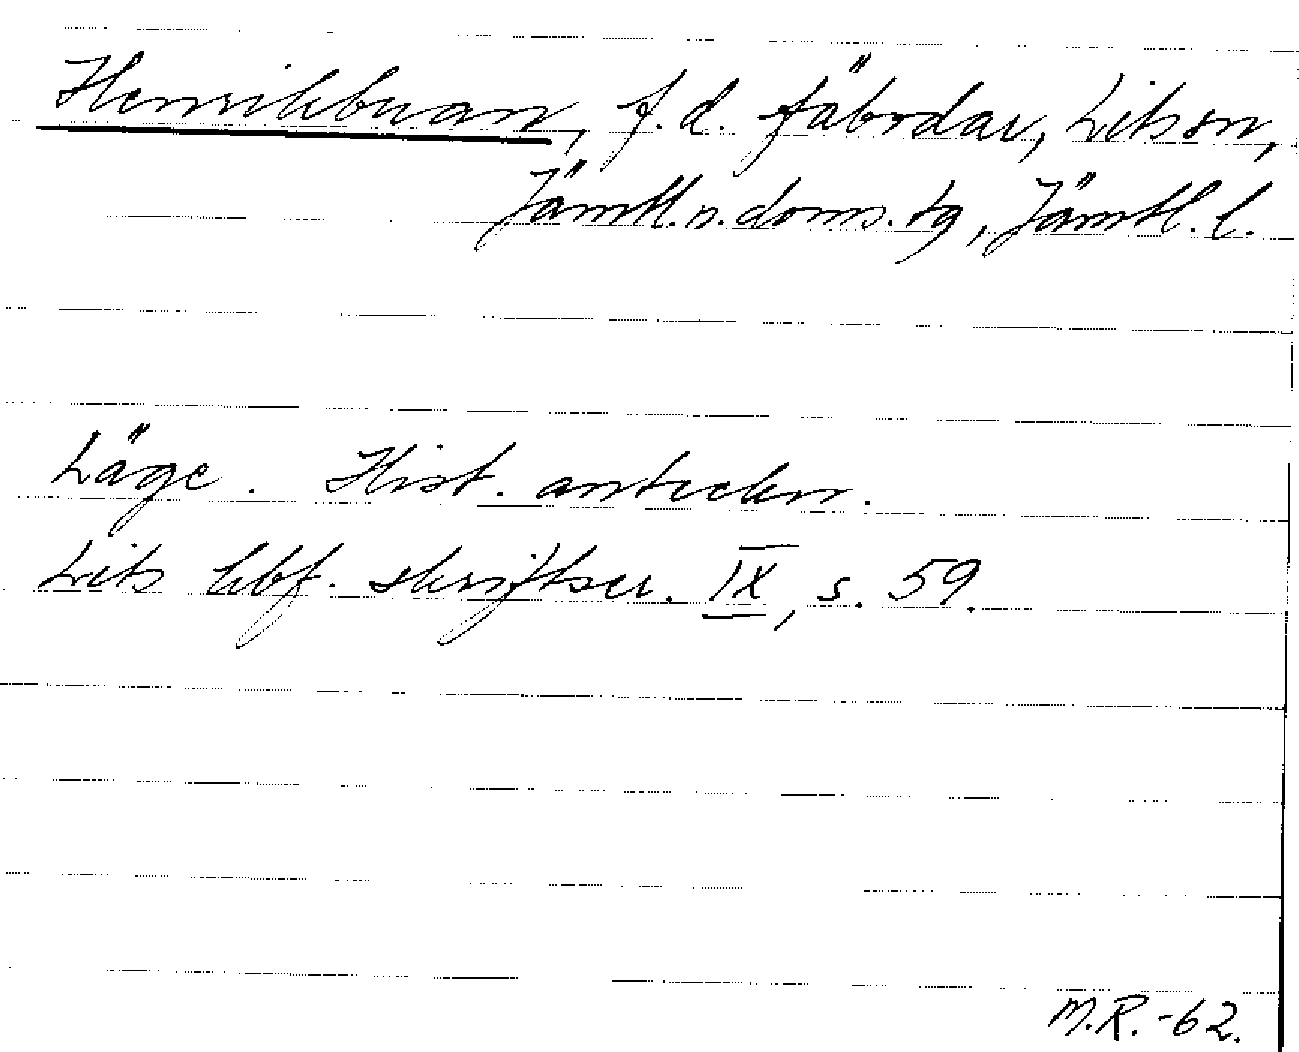 Henrikbuan, f.d. fäbodar, Lits sn,
Jämtl. n. doms. tg, Jämtl. l.
Läge. Hist. anteckn.
Lits hbf. skriftser. IX, s. 59.
M.R.-62.